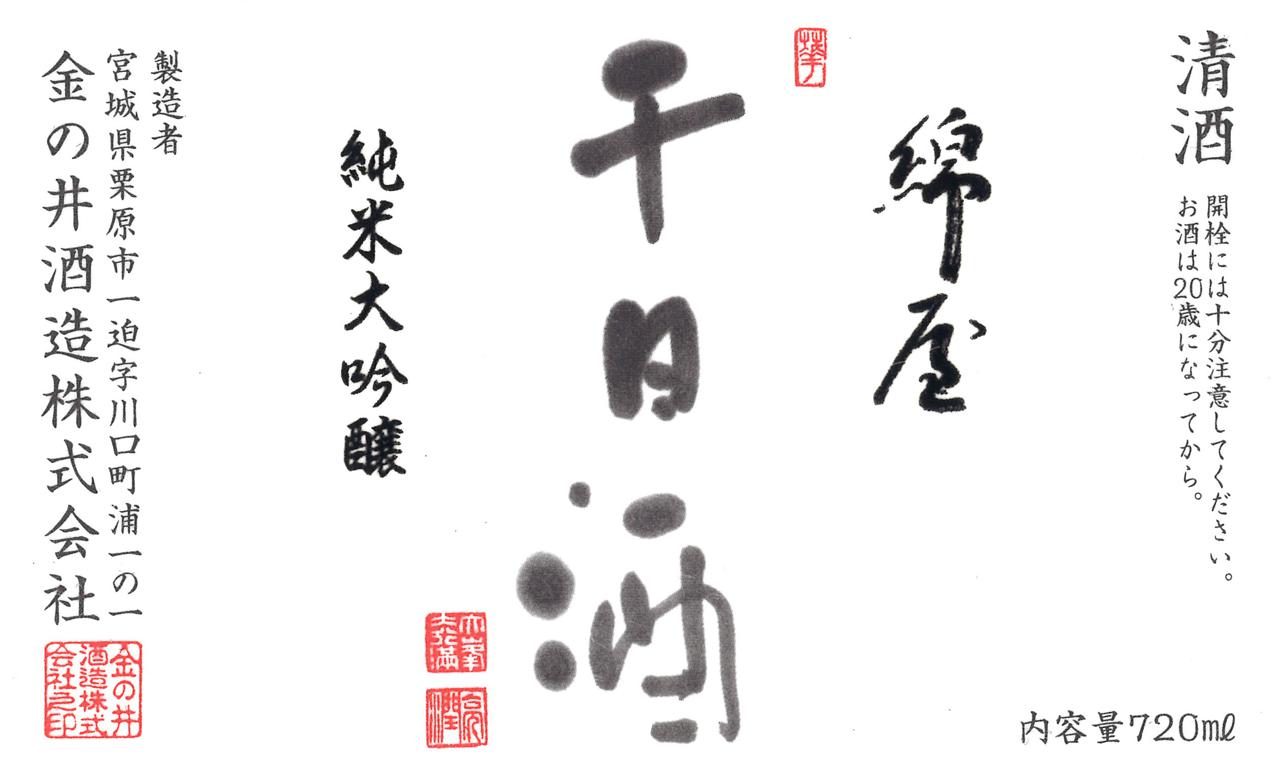 清酒
開栓には十分注意してください。
お酒は20歳になってから。
内容量720ml
綿屋
千日酒
純米大吟醸
製造者
宮城県栗原市一迫字川口町浦一の一
金の井酒造株式会社
金の井
酒造株式
会社之印